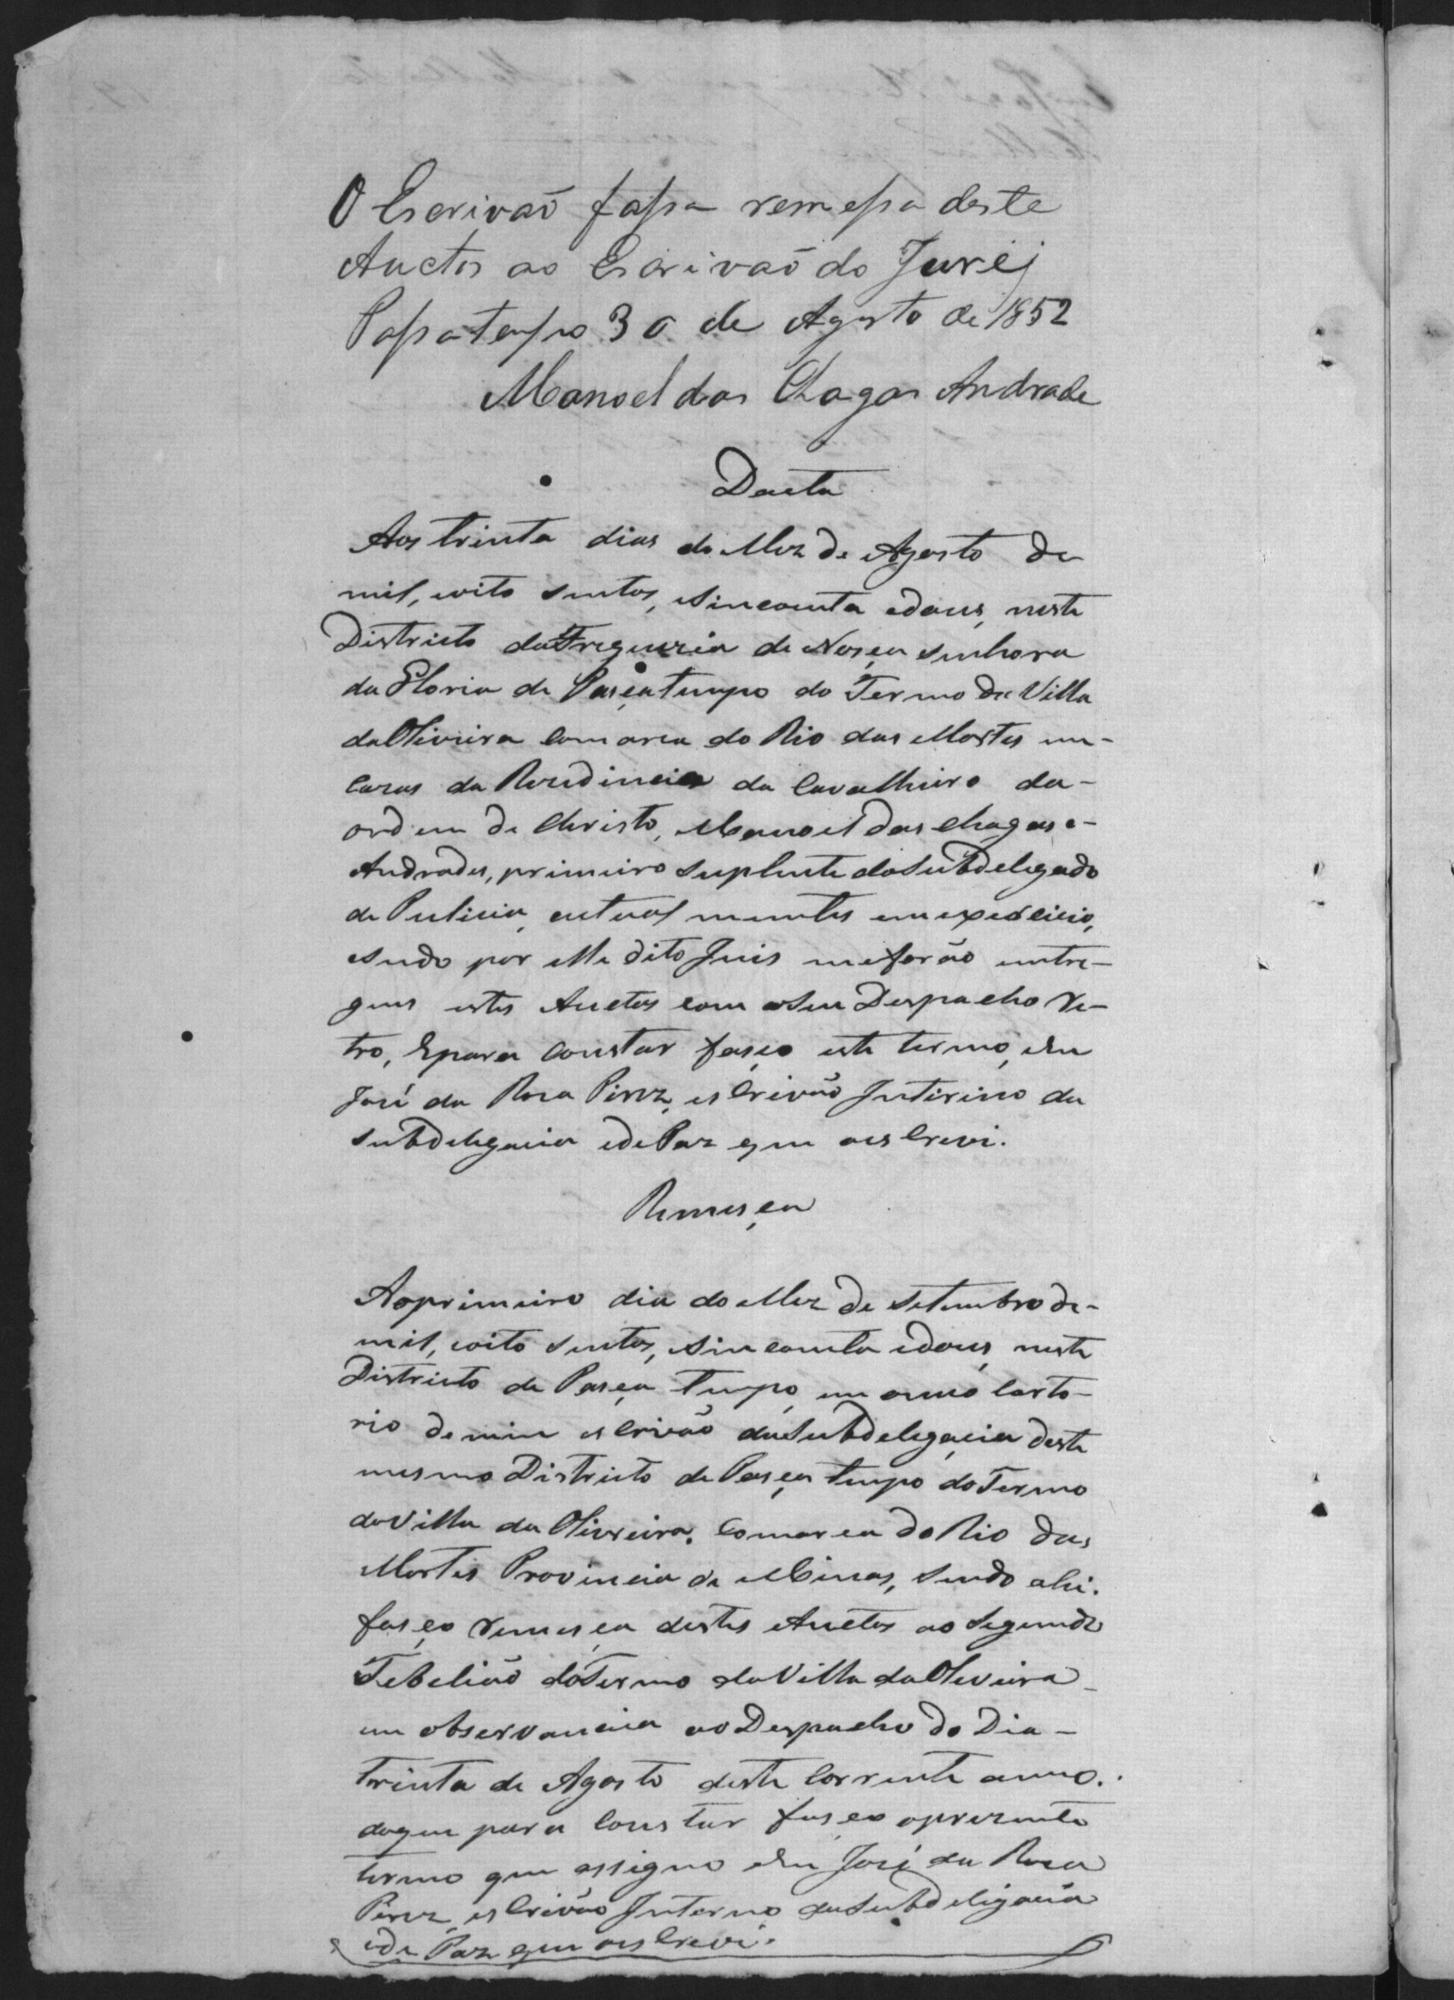 O Escrivaõ fassa remessa deste
Auctos ao Escrivaõ do Jurij
Passatempo 30 de Agosto de 1852
Manoel das Chagas Andrade
Dacta
Aos trinta dias do Mez de Agosto de
mil, oito sentos, esincoenta edous, neste
Districto da Freguezia de Noseça senhora
da Gloria de Paseçatempo do Termo da Villa
da Oliveira Comarca do Rio das Mortes em-
Cazas da Rezidincia do Cavalheiro da-
ordem de Christo, Manoel das chagas e-
Andrades, primeiro suplente do Subdelegado
de Pulicia, autual mentes em exercicio,
esendo por elle dito Juis meforão entre-
gues estes Auctos com oSeu Despacho re-
tro, Epara constar fasço este termo, eEu
José da Roza Pirez, esCrivão Intirino da
Subdelegacia ede Paz que oesCrevi.
Remesça
Aoprimeiro dia do Mez de Setembro de-
mil, oito sentos, esincoenta edous, neste
Districto de Pasça tempo, em omeo Carto-
rio demim esCrivão daSubdelegacia deste
mesmo Districto de Pasça tempo doTermo
daVilla da Oliveira, Comarca do Rio das
Mortes Provincia de Minas, sendo ahi.
fasço remesça destes Auctos ao Segundo
Tebelião doTermo da Villa da Oliveira
em observancia ao Despacho do Dia-
trinta de Agosto deste Corrente anno.
doque para Constar fasço oprezente
termo que assigno eEu José da Roza
Pirez, esCrivão Interno daSubdeligacia
ede Paz que oesCrevi.